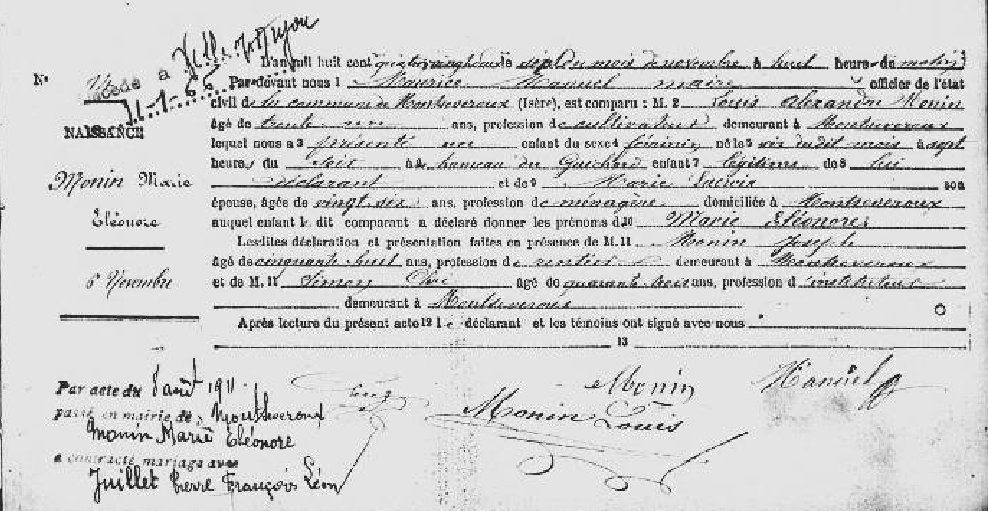 N°
Décédée à
11.1.66
NAISSANCE
Monin Marie
Eléonore
6 Novembre
L'an mil huit cent quatre vingt douze le sept du mois de novembre à huit heures du matin
Par-devant nous 1 Maurice Manuel maire officier de l'état
civil de la commune de Montseveroux (Isère), est comparu : M. 2 Louis Alexandre Monin
âgé de trente un ans, profession de cultivateur demeurant à Montseveroux
lequel nous a 3 présenté un enfant du sexe 4 féminin né le 5 six dudit mois à sept
heures du soir à 6 hameau du Guichard enfant 7 légitime de 8 lui
déclarant et de 9 Marie Lacroix son
épouse, âgée de vingt six ans, profession de ménagère domiciliée à Montseveroux
auquel enfant le dit comparant a déclaré donner les prénoms d 10 Marie Eléonore
Lesdites déclaration et présentation faites en présence de M. 11 Monin Joseph
âgé de cinquante huit ans, profession de rentier demeurant à Montseveroux
et de M. 11 Simon âgé de quarante trois ans, profession d'instituteur
demeurant à Montseveroux
Après lecture du présent acte 12 le déclarant et les témoins ont signé avec nous
13
Monin
Manuel
Monin Louis
Par acte du 8 août 1911
passé en mairie de Montseveroux
Monin Marie Eléonore
a contracté mariage avec
Juillet Pierre François Léon